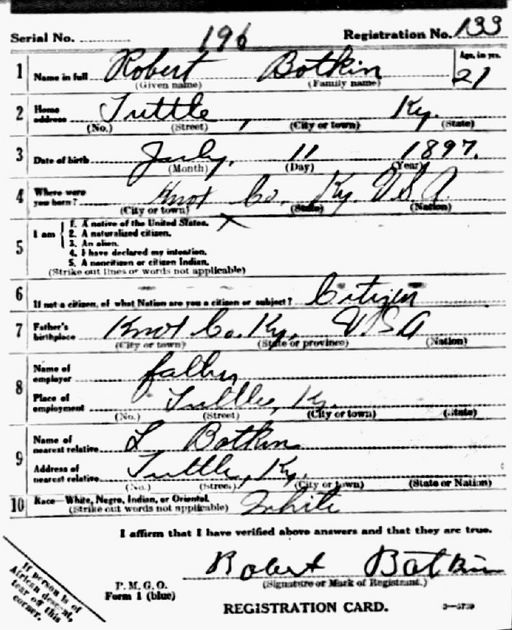 Serial No. 196 Registration No. 133
1 Name in full Robert Botkin Age, in yrs. 21
(Given name) (Family name)
2 Home address Tuttle, Ky.
(No.) (Street) (City or town) (State)
3 Date of birth July, 11 1897.
(Month) (Day) (Year)
4 Where were you born? Knot Co. Ky. U S A
(City or town) (State) (Nation)
5 I am 1. A native of the United States. X
2. A naturalized citizen.
3. An alien.
4. I have declared my intention.
5. A noncitizen or citizen Indian.
(Strike out lines or words not applicable)
6 If not a citizen, of what Nation are you a citizen or subject? Citizen
7 Father's birthplace Knot Co. Ky. U S A
(City or town) (State or province) (Nation)
8 Name of employer father
Place of employment Tuttle, Ky.
(No.) (Street) (City or town) (State)
9 Name of nearest relative L Botkin
Address of nearest relative Tuttle, Ky.
(No.) (Street) (City or town) (State or Nation)
10 Race—White, Negro, Indian, or Oriental. White
(Strike out words not applicable)
I affirm that I have verified above answers and that they are true.
Robert Botkin
(Signature or Mark of Registrant.)
P. M. G. O.
Form 1 (blue)
REGISTRATION CARD.
If person is of
African descent,
tear off this
corner.